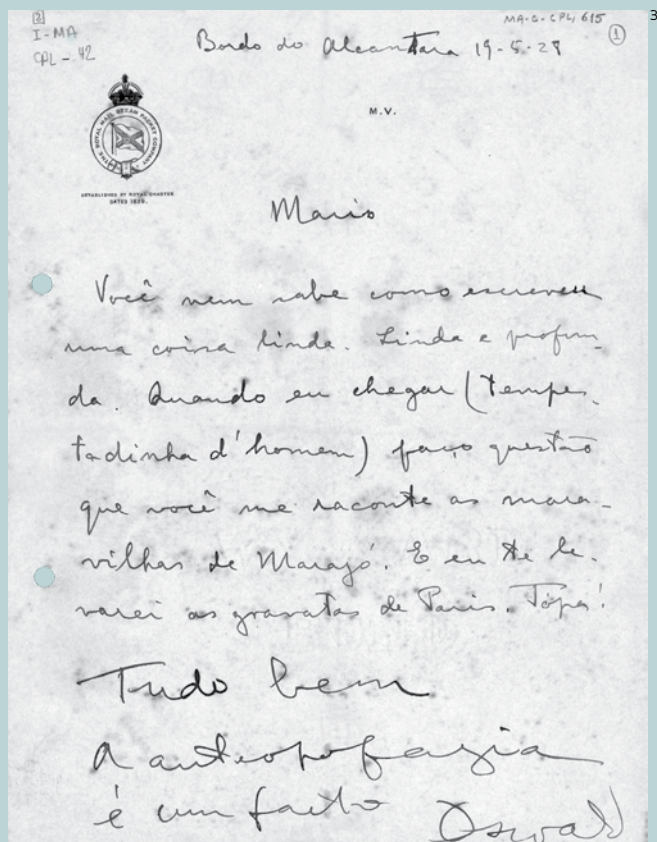 3
2
MA-C-CPL, 615
1
I-MA
CPL-42
Bordo do Alcantara 19-5-28
M.V.
THE ROYAL MAIL STEAM PACKET COMPANY
ESTABLISHED BY ROYAL CHARTER
DATED 1839.
Mario
Você nem sabe como escreveu
uma coisa linda. Linda e profun-
da. Quando eu chegar (tempes-
tadinha d'homem) faço questão
que você me raconte as mara-
vilhas de Marajó. E eu te le-
varei as gravatas de Paris. Topa!
Tudo bem
A antropofagia
é um facto Oswald